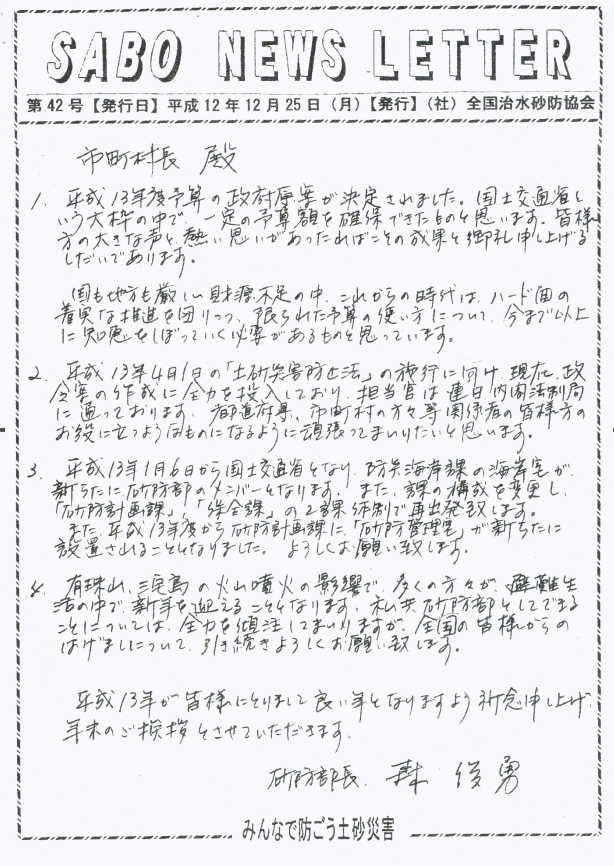 SABO NEWS LETTER
第42号【発行日】平成12年12月25日（月）【発行】（社）全国治水砂防協会
市町村長 殿
1. 平成13年度予算の政府原案が決定されました。国土交通省と
いう大枠の中で、一定の予算額を確保できたものと思います。皆様
方の大きな声と、熱い思いがあったればこその成果と御礼申し上げる
しだいであります。
国も地方も厳しい財源不足の中、これからの時代は、ハード面の
着実な推進を図りつつ、限られた予算の使い方について、今まで以上
に知恵をしぼっていく必要があるものと思っています。
2. 平成13年4月1日の「土砂災害防止法」の施行に向け、現在、政
令等の作成に全力を投入しており、担当官は連日内閣法制局
に通っております。都道府県、市町村の方々等関係者の皆様方の
お役に立つようなものになるように頑張ってまいりたいと思います。
3. 平成13年1月6日から国土交通省となり、防災海岸課の海岸室が、
新らたに砂防部のメンバーとなります。また、課の構成を変更し、
「砂防計画課」、「保全課」の2課体制で再出発致します。
また、平成13年度から砂防計画課に、「砂防管理室」が新らたに
設置されることとなりました。よろしくお願い致します。
4. 有珠山、三宅島の火山噴火の影響で、多くの方々が、避難生
活の中で、新年を迎えることとなります。私共、砂防部としてできる
ことについては、全力を傾注してまいりますが、全国の皆様からの
はげましについて、引き続きよろしくお願い致します。
平成13年が皆様にとりまして良い年となりますよう祈念申し上げ、
年末のご挨拶とさせていただきます。
砂防部長 森 俊勇
みんなで防ごう土砂災害